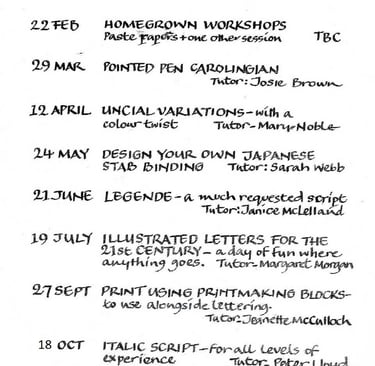 22 FEB HOMEGROWN WORKSHOPS
Paste papers + one other session TBC
29 MAR POINTED PEN CAROLINGIAN
Tutor: Josie Brown
12 APRIL UNCIAL VARIATIONS - with a
colour twist Tutor - Mary Noble
24 MAY DESIGN YOUR OWN JAPANESE
STAB BINDING Tutor: Sarah Webb
21 JUNE LEGENDE - a much requested script
Tutor: Janice McLelland
19 JULY ILLUSTRATED LETTERS FOR THE
21st CENTURY - a day of fun where
anything goes. Tutor - Margaret Morgan
27 SEPT PRINT USING PRINTMAKING BLOCKS -
to use alongside lettering.
Tutor: Jeanette McCulloch
18 OCT ITALIC SCRIPT - For all levels of
experience Tutor: Peter Lloyd